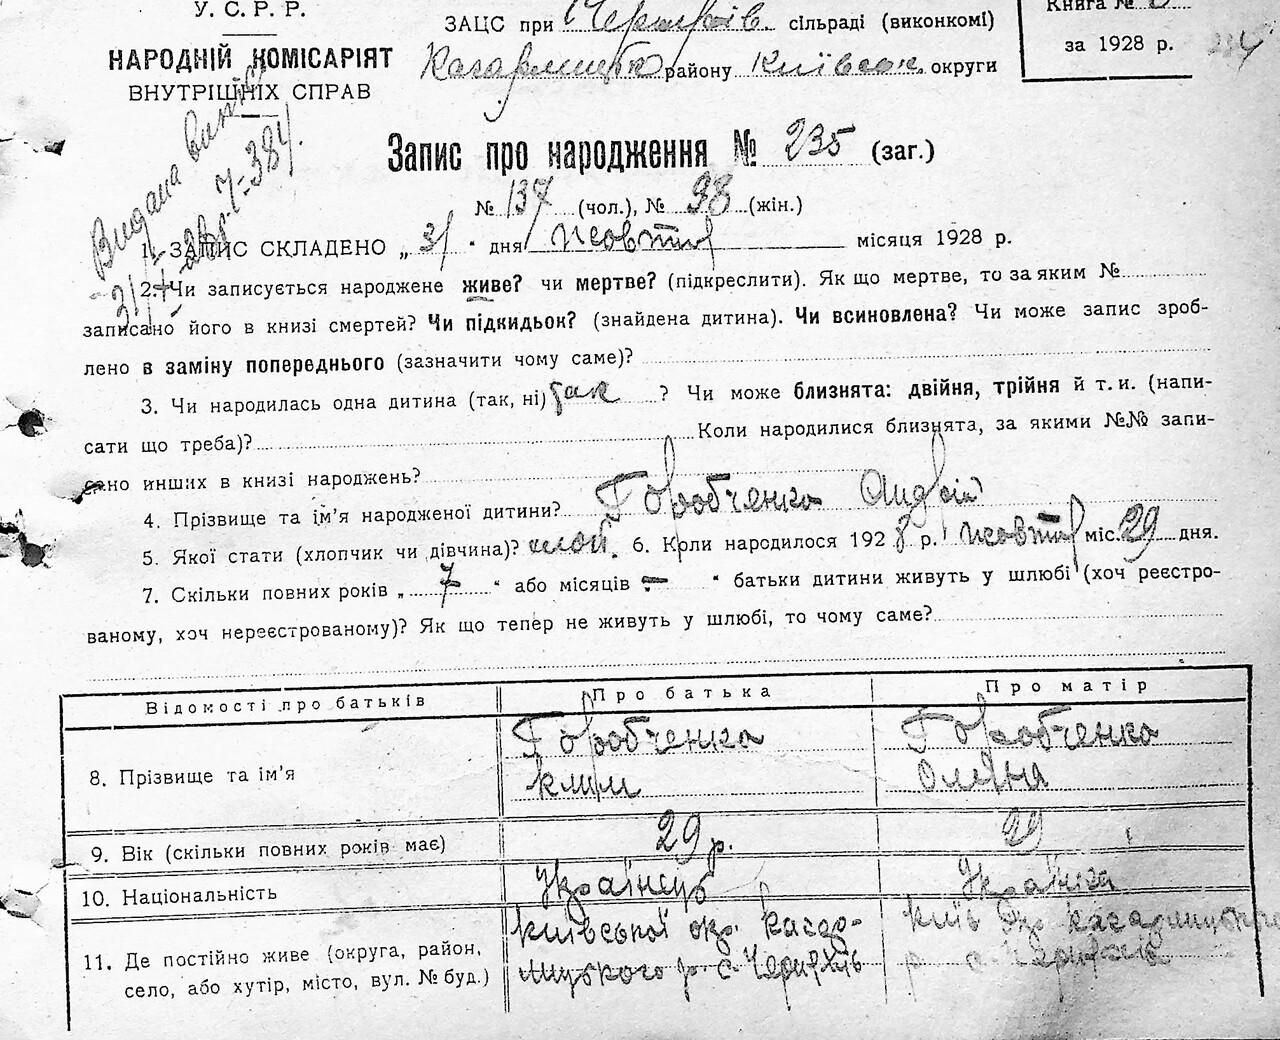 У. С. Р. Р.
НАРОДНІЙ КОМІСАРІЯТ
ВНУТРІШНІХ СПРАВ
ЗАЦС при сільраді (виконкомі)
району округи
Книга №
за 1928 р.
Видана
Запис про народження № 235 (заг.)
№ 137 (чол.), № 98 (жін.)
1. ЗАПИС СКЛАДЕНО „ 31 " дня жовтня місяця 1928 р.
2. Чи записується народжене живе? чи мертве? (підкреслити). Як що мертве, то за яким №
записано його в книзі смертей? Чи підкидьок? (знайдена дитина). Чи всиновлена? Чи може запис зроб-
лено в заміну попереднього (зазначити чому саме)?
3. Чи народилась одна дитина (так, ні) так ? Чи може близнята: двійня, трійня й т. и. (напи-
сати що треба)? Коли народилися близнята, за якими №№ запи-
сано инших в книзі народжень?
4. Прізвище та ім'я народженої дитини? Горобченко Андрій
5. Якої стати (хлопчик чи дівчина)? 6. Коли народилося 1928 р. жовтня міс. 29 дня.
7. Скільки повних років „ 7 " або місяців „ – " батьки дитини живуть у шлюбі (хоч реєстро-
ваному, хоч нереєстрованому)? Як що тепер не живуть у шлюбі, то чому саме?
Відомості про батьків Про батька Про матір
8. Прізвище та ім'я Горобченко Клим Горобченко Оляна
9. Вік (скільки повних років має) 29 р. 29
10. Національність Українець Українка
11. Де постійно живе (округа, район, село, або хутір, місто, вул. № буд.) Київської окр. Кагар-
лицького р с. Київ окр Кагарлицького
р с.